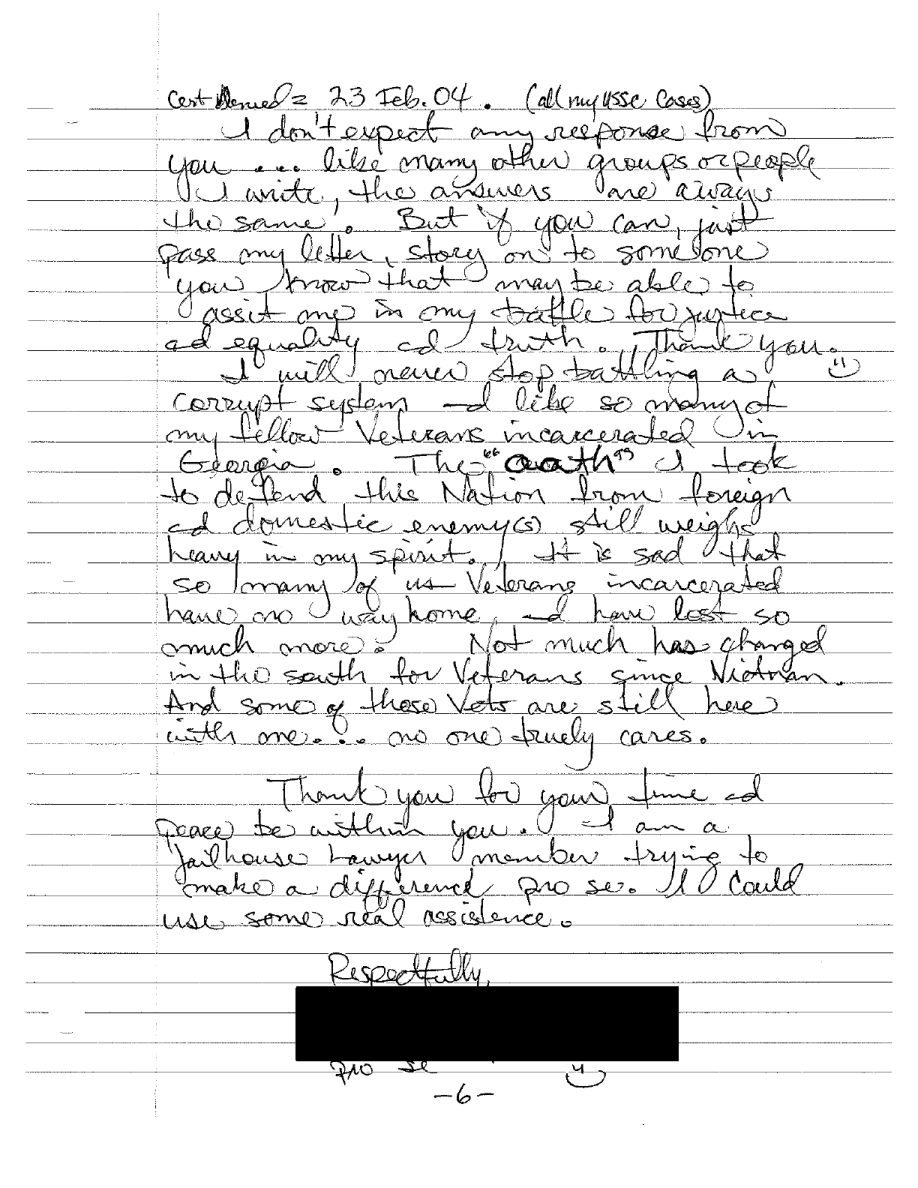 Cert Denied = 23 Feb. 04. (all my USSC Cases)
I don't expect any response from
you ... like many other groups or people
I write, the answers are always
the same. But if you can, just
pass my letter, story on to someone
you know that may be able to
assit me in my battle for justice
ad equality ad truth. Thank you.
I will never stop battling a
corrupt system ad like so many of
my fellow Veterans incarcerated in
Georgia. The "oath" I took
to defend this Nation from foreign
ad domestic enemy(s) still weighs
heavy in my spirit. It is sad that
so many of us Veterans incarcerated
have no way home, ad have lost so
much more. Not much has changed
in the south for Veterans since Vietnam.
And some of those Vets are still here
with me... no one truely cares.
Thank you for your time ad
peace be within you. I am a
Jailhouse Lawyer member trying to
make a difference pro se. I could
use some real assistence.
Respectfully,
pro se
-6-